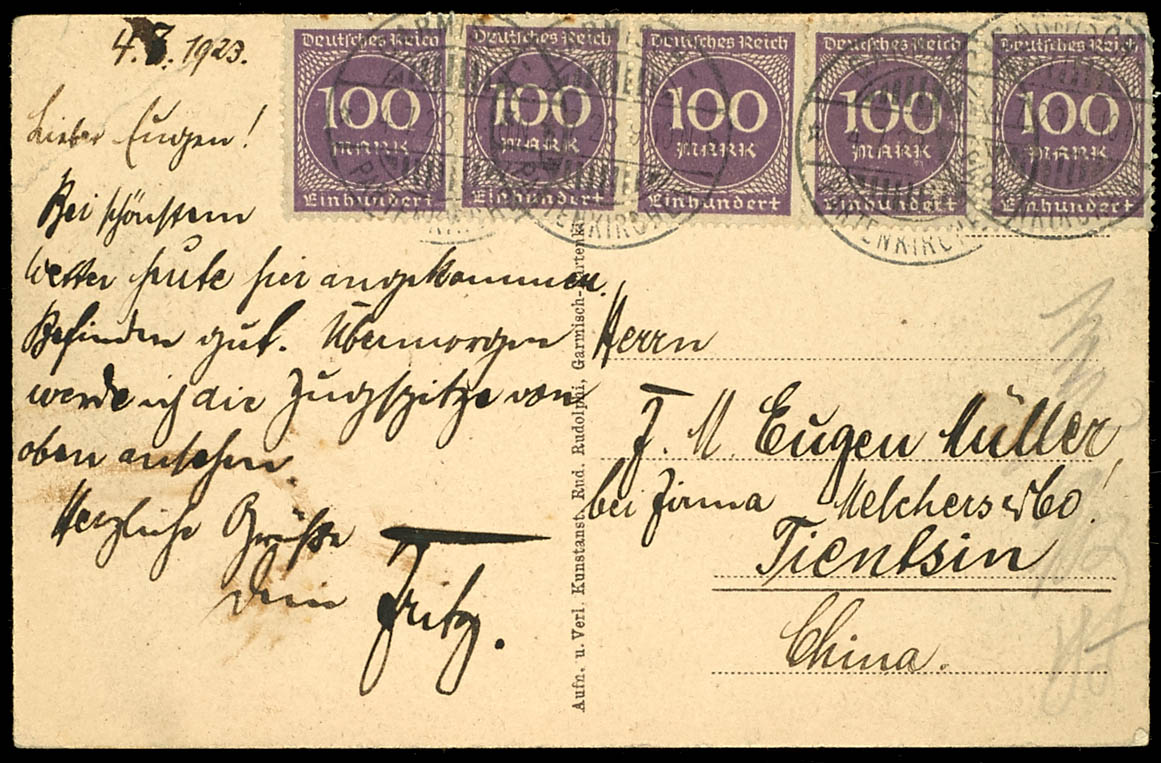 4. 7. 1923.
Lieber Eugen!
Bei schönstem
Wetter heute hier angekommen.
Befinden gut. Übermorgen
werde ich die Zugspitze von
oben ansehen.
Herzliche Grüße
Dein Fritz.
Deutsches Reich
100
MARK
Einhundert
Deutsches Reich
100
MARK
Einhundert
Deutsches Reich
100
MARK
Einhundert
Deutsches Reich
100
MARK
Einhundert
Deutsches Reich
100
MARK
Einhundert
GARMISCH
PARTENKIRCHEN
Aufn. u. Verl. Kunstanst. Rud. Rudolphi, Garmisch-Partenki
Herrn
J. M. Eugen Müller,
bei Firma Melchers & Co.
Tientsin
China.